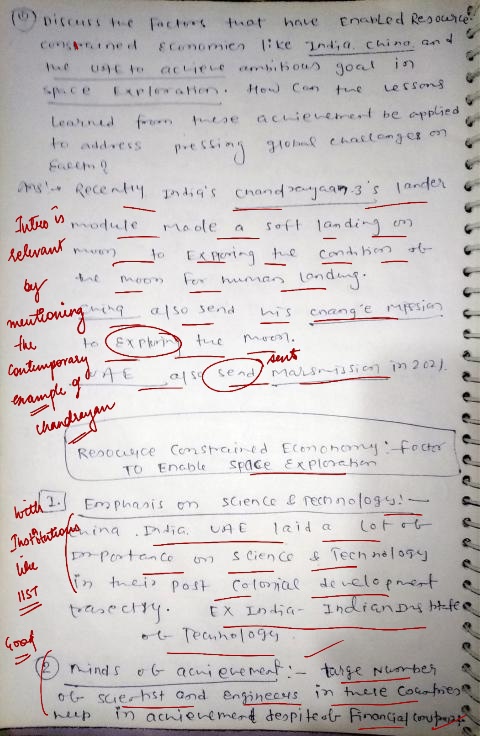 10) Discuss the factors that have Enabled Resource
constrained Economies like India, China and
the UAE to achieve ambitious goal in
space Exploration. How can the lessons
learned from these achievement be applied
to address pressing global challenges on
Earth?
Ans:- Recently India's chandrayaan-3's lander
module made a soft landing on
moon to Exploring the condition of
the moon for human landing.
China also send his chang'e mission
to Exploring the moon.
UAE also send sent Mars mission in 2021.
Intro is
relevant
by
mentioning
the
contemporary
example of
chandrayan
Resource Constrained Economy:- factor
To Enable Space Exploration
1. Emphasis on Science & Technology:-
China, India, UAE laid a lot of
importance on science & Technology
in their post colonial development
trajectry. EX India- Indian Institute
of Technology.
With
Institutions
like
IIST
Good
2) minds of achievement:- Large Number
of scientist and engineers in these countries
help in achievement despite of financial